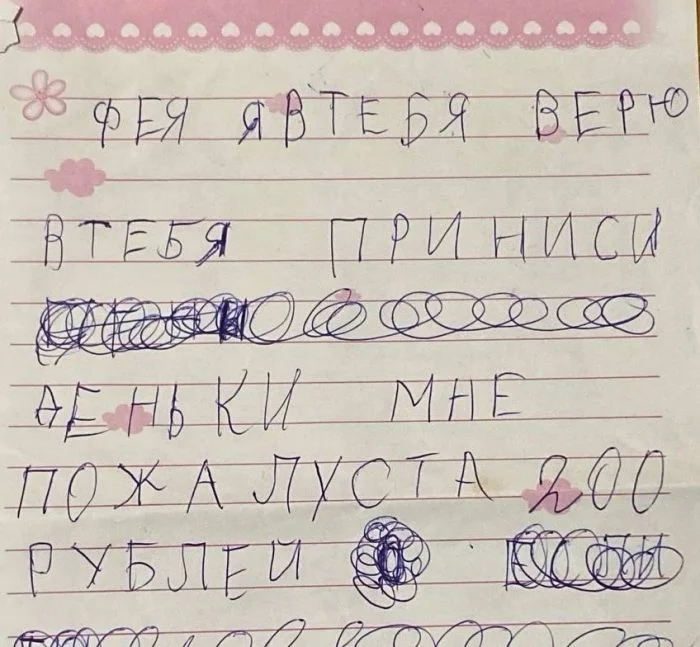 ФЕЯ Я В ТЕБЯ ВЕРЮ
В ТЕБЯ ПРИНИСИ
ДЕНЬКИ МНЕ
ПОЖАЛУСТА 200
РУБЛЕЙ